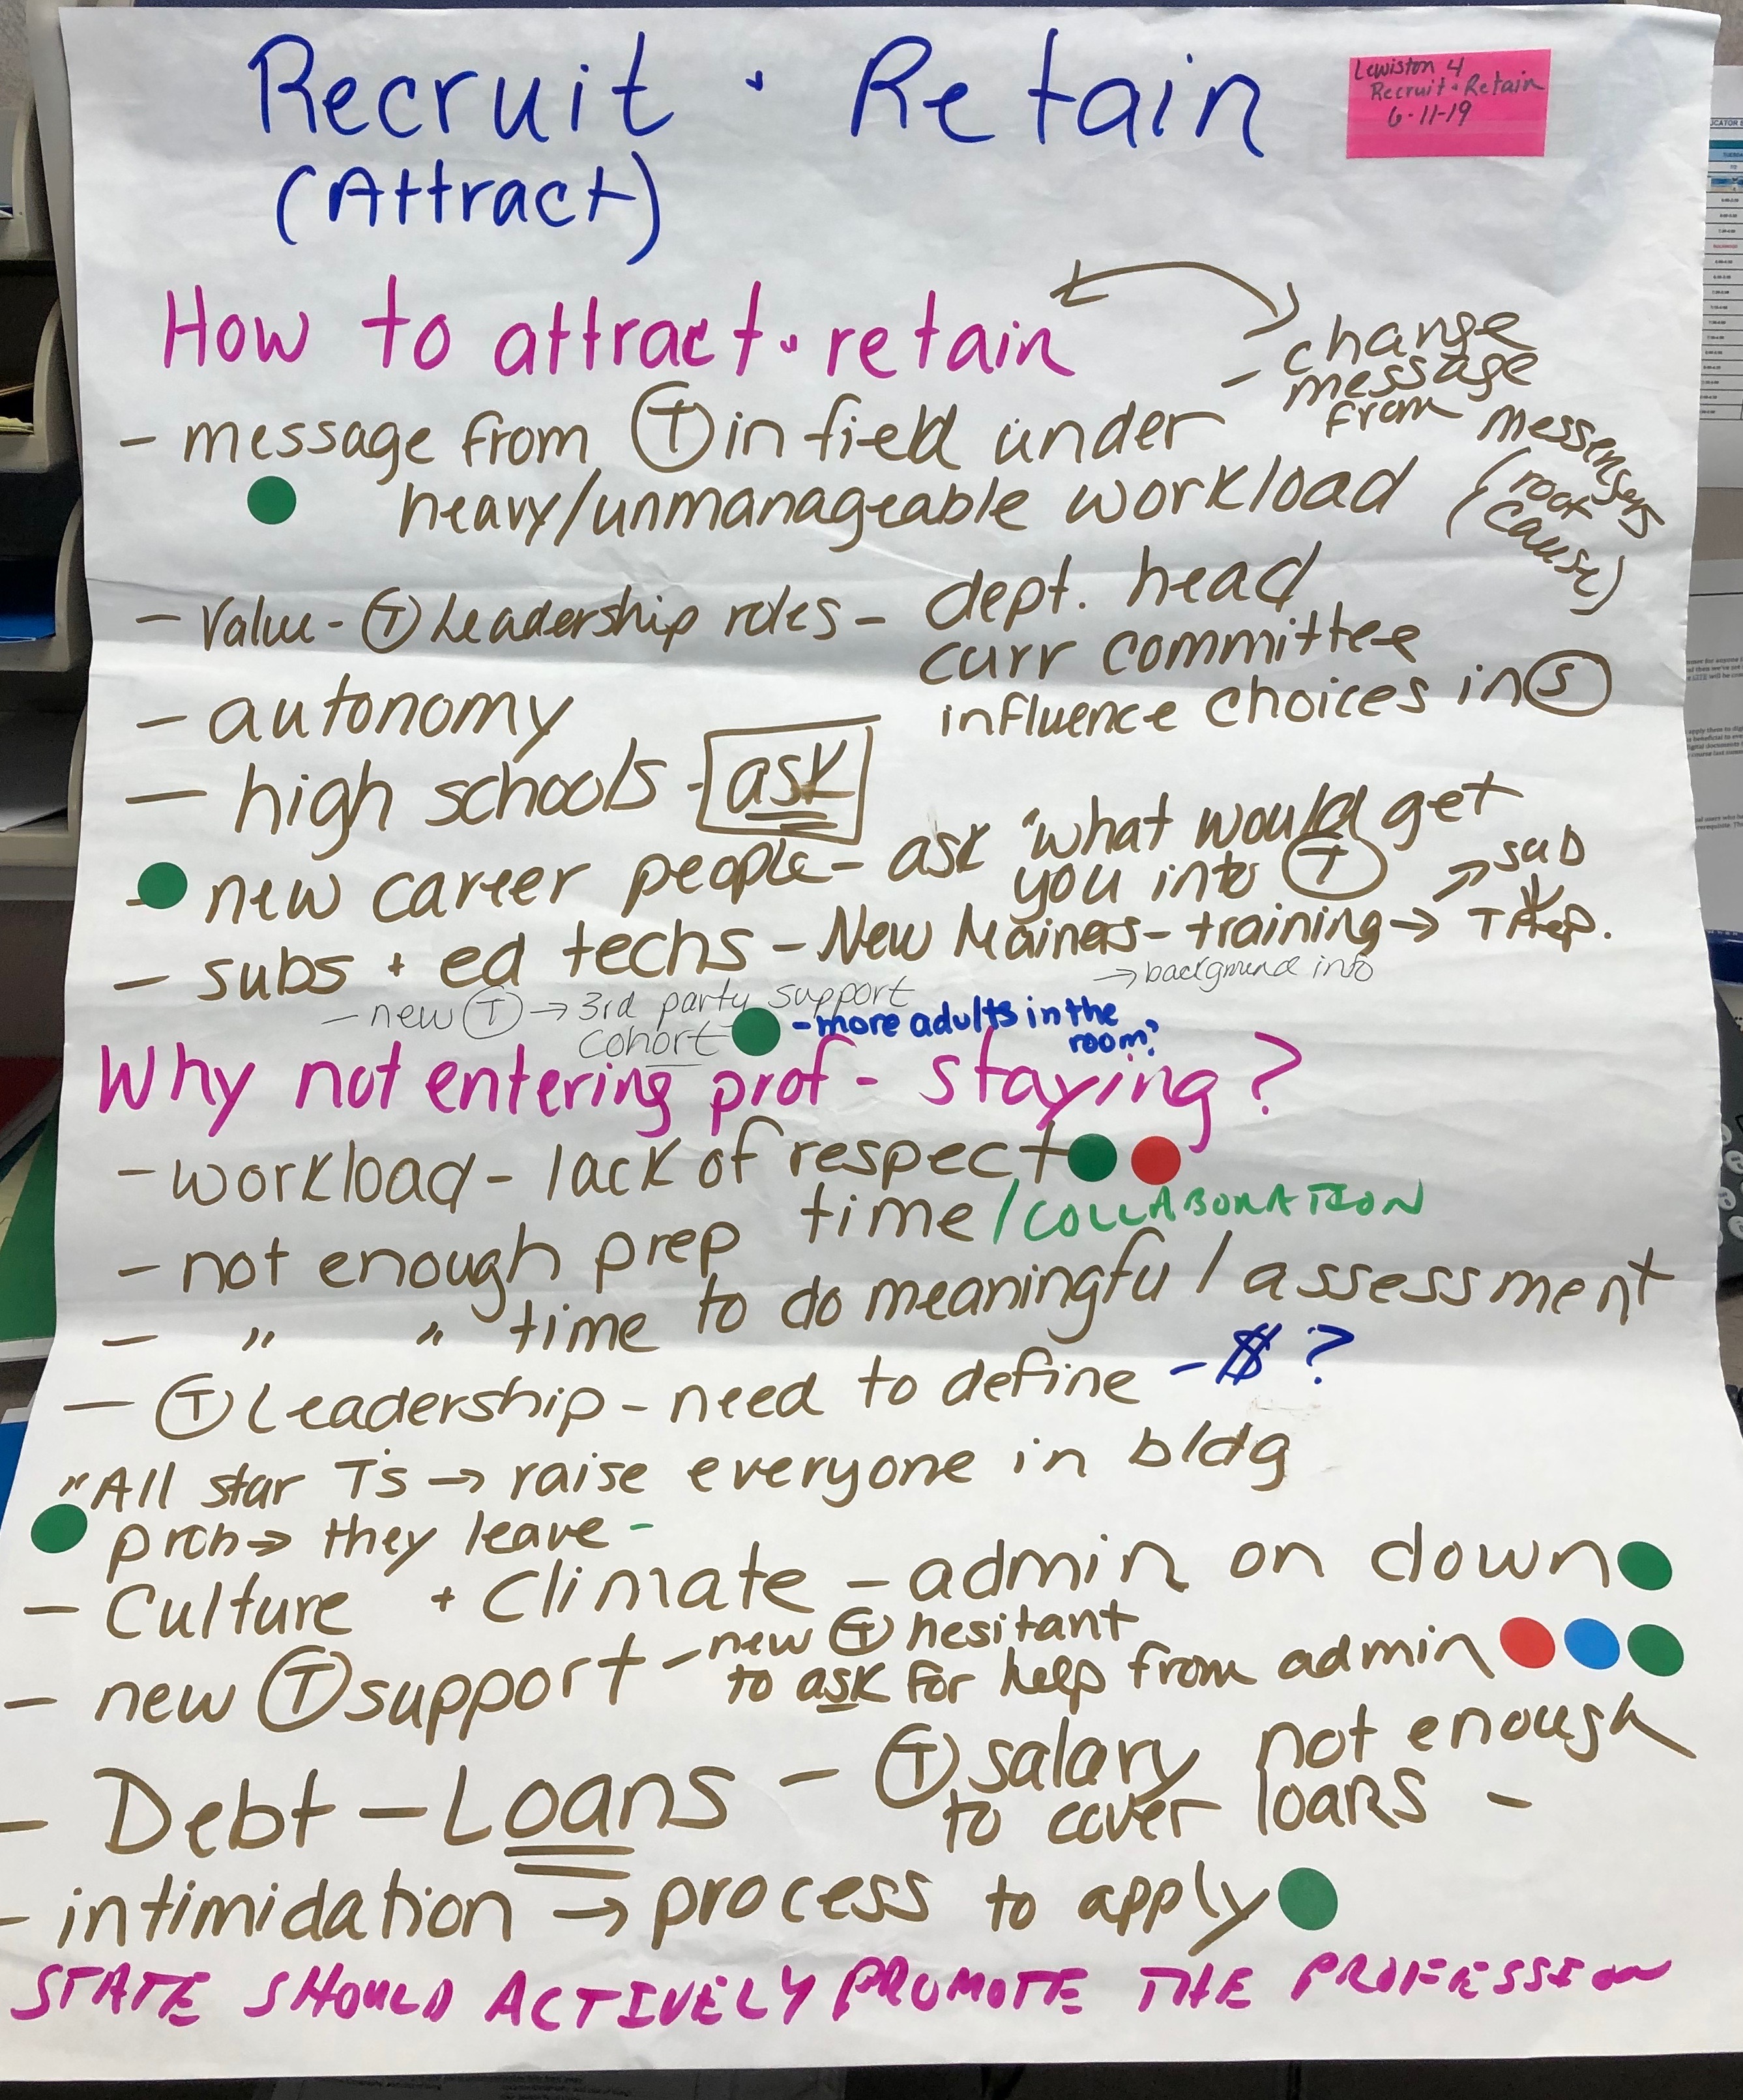 Recruit + Retain
(Attract)
Lewiston 4
Recruit + Retain
6-11-19
How to attract + retain
- change
message
from messengers
(root
cause)
- message from Ⓣ in field under
heavy/unmanageable workload
- Value - Ⓣ Leadership roles - dept. head
curr committee
influence choices in Ⓢ
- autonomy
- high schools - ask
- new career people - ask "what would get
you into Ⓣ
- subs + ed techs - New Mainers - training → sub
→ background info
- new Ⓣ → 3rd party support
cohort
- more adults in the
room?
Why not entering prof - staying?
- workload - lack of respect
- not enough prep time / COLLABORATION
- " " time to do meaningful assessment
- Ⓣ Leadership - need to define - $ ?
"All star T's → raise everyone in bldg
prob → they leave -
- Culture + Climate - admin on down
- new Ⓣ support - new Ⓣ hesitant
to ask for help from admin
- Debt - Loans - Ⓣ salary not enough
to cover loans -
- intimidation → process to apply
STATE SHOULD ACTIVELY PROMOTE THE PROFESSION